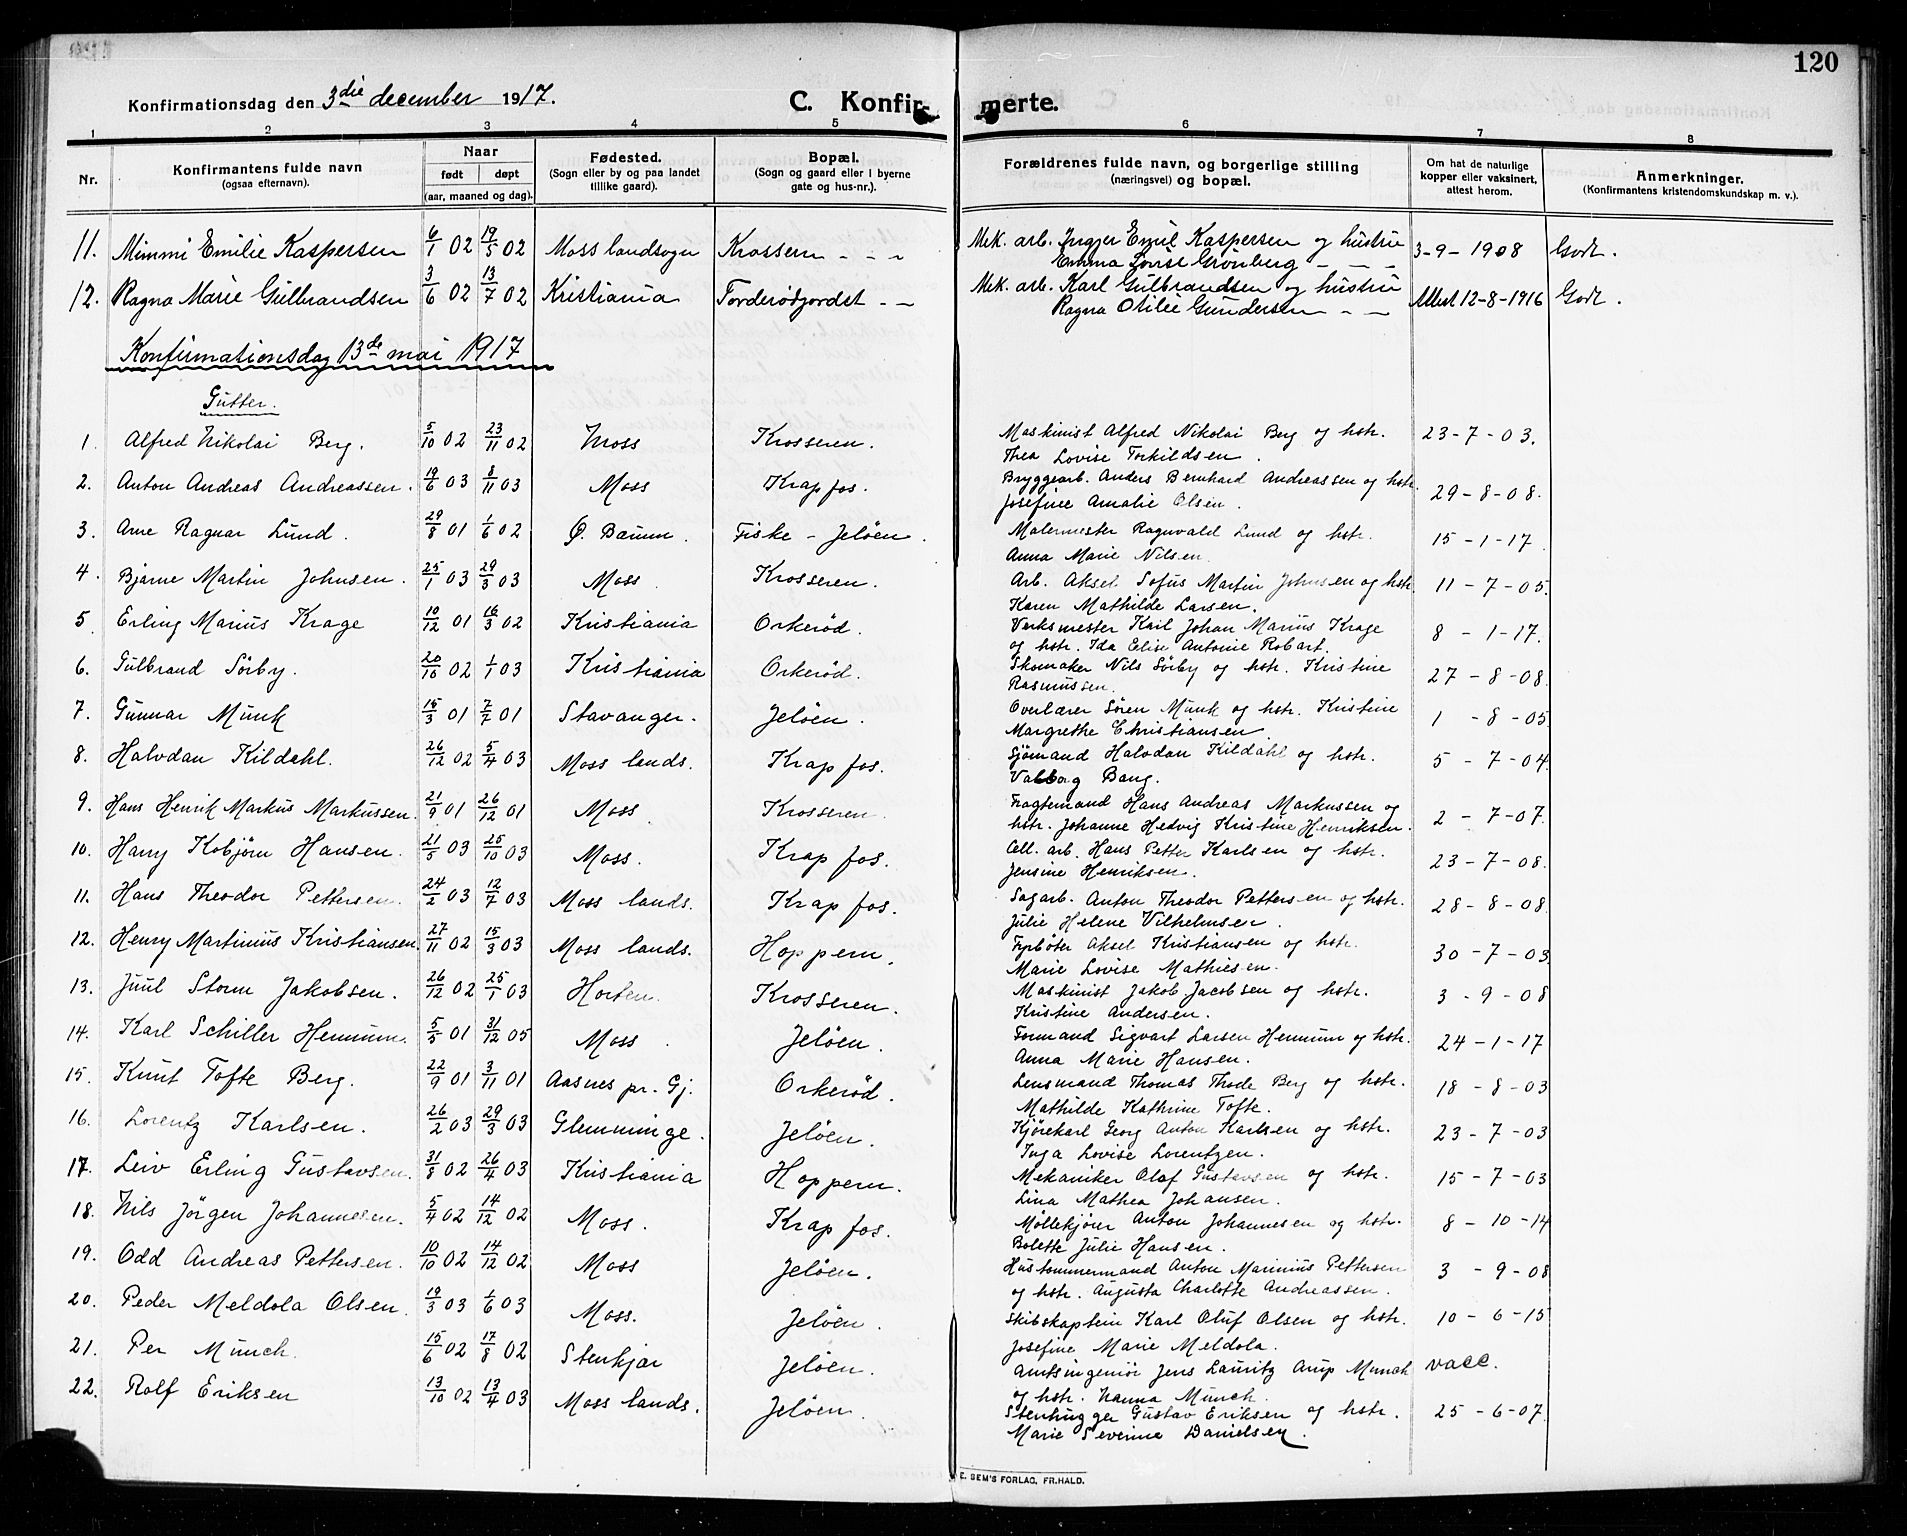 120
Konfirmationsdag den 3die december 1917.
C. Konfirmerte.
1 2 3 4 5 6 7 8
Nr.
Konfirmantens fulde navn
(ogsaa efternavn).
Naar
født døpt
(aar, maaned og dag).
Fødested.
(Sogn eller by og paa landet
tillike gaard).
Bopæl.
(Sogn og gaard eller i byerne
gate og hus-nr.).
Forældrenes fulde navn, og borgerlige stilling
(næringsvei) og bopæl.
Om hat de naturlige
kopper eller vaksinert,
attest herom.
Anmerkninger.
(Konfirmantens kristendomskundskap m. v.).
11. Mimmi Emilie Kaspersen 6/1 02 19/5 02 Moss landsogn Krossern - - - Mek. arb. Ingjer Emil Kaspersen og hustru 3-9-1908 Godt.
Emma Lovise Grønberg - - -
12. Ragna Marie Gulbrandsen 3/6 02 13/7 02 Kristiania Torderødjordet - - Mek. arb. Karl Gulbrandsen og hustru Attest 12-8-1916 Godt.
Ragna Otilie Gundersen - -
Konfirmationsdag 13de mai 1917
Gutter.
1. Alfred Nikolai Berg. 5/10 02 23/11 02 Moss Krosseren. Maskinist Alfred Nikolai Berg og hstr. 23-7-03.
Thea Lovise Torkildsen.
2. Anton Andreas Andreassen. 19/6 03 8/11 03 Moss Krapfos. Bryggearb. Anders Bernhard Andreassen og hstr. 29-8-08.
Josefine Amalie Olsen.
3. Arne Ragnar Lund. 29/8 01 1/6 02 Ø. Bærum. Fiske - Jeløen. Malermester Ragnvald Lund og hstr. 15-1-17.
Anna Marie Nilsen
4. Bjarne Martin Johnsen. 25/1 03 29/3 03 Moss. Krosseren. Arb. Aksel Sofus Martin Johnsen og hstr. 11-7-05.
Karen Mathilde Larsen.
5. Erling Marius Krage 10/12 01 16/3 02 Kristiania Orkerød. Verksmester Karl Johan Marius Krage 8-1-17.
og hstr. Ida Elise Antonie Robart.
6. Gulbrand Sörby. 20/10 02 1/1 03 Kristiania Orkerød. Skomaker Nils Sörby og hstr. Kristine 27-8-08.
Rasmussen.
7. Gunnar Munk 15/3 01 7/7 01 Stavanger. Jeløen. Overlærer Søren Munk og hstr. Kristine 1-8-05
Margrethe Christiansen.
8. Halvdan Kildahl. 26/12 02 5/4 03 Moss lands. Krapfos. Sjømand Halvdan Kildahl og hstr. 5-7-04.
Valborg Bang.
9. Hans Henrik Markus Markussen. 21/9 01 26/12 01 Moss Krosseren. Fragtemand Hans Andreas Markussen og 2-7-07.
hstr. Johanne Hedvig Kristine Henriksen.
10. Harry Kobjörn Hansen. 21/5 03 25/10 03 Moss. Krapfos. Cell. arb. Hans Petter Karlsen og hstr. 23-7-08.
Jensine Henriksen.
11. Hans Theodor Pettersen. 24/2 03 12/7 03 Moss lands. Krapfos. Sagarb. Anton Theodor Pettersen og hstr. 28-8-08.
Julie Helene Vilhelmsen.
12. Henry Martinius Kristiansen 27/11 02 15/3 03 Moss lands. Hoppern. Fyrbøter Aksel Kristiansen og hstr. 30-7-03.
Marie Lovise Mathiesen.
13. Juul Storm Jakobsen. 26/12 02 25/1 03 Horten. Krosseren. Maskinist Jakob Jacobsen og hstr. 3-9-08
Kristine Andersen.
14. Karl Schiller Hennum. 5/5 01 31/12 05 Moss. Jeløen. Formand Sigvart Larsen Hennum og hstr. 24-1-17
Anna Marie Hansen.
15. Knut Tofte Berg. 22/9 01 3/11 01 Aasnes pr. Gj. Orkerød. Lensmand Thomas Thode Berg og hstr. 18-8-03
Mathilde Kathrine Tofte.
16. Lorentz Karlsen. 26/2 03 29/3 03 Glemminge. Jeløen. Kjørekarl Georg Anton Karlsen og hstr. 23-7-03
Inga Lovise Lorentzen.
17. Leiv Erling Gustavsen. 31/8 02 26/4 03 Kristiania Hoppern. Mekaniker Olaf Gustavsen og hstr. 15-7-03
Lina Mathea Johansen.
18. Nils Jörgen Johannesen. 5/4 02 14/12 02 Moss. Krapfos. Møllekjører Anton Johannesen og hstr. 8-10-14
Bolette Julie Hansen.
19. Odd Andreas Pettersen. 10/10 02 14/12 02 Moss Jeløen. Hustømmermand Anton Marinius Pettersen 3-9-08
og hstr. Augusta Charlotte Andreassen.
20. Peder Meldola Olsen. 19/3 03 1/6 03 Moss. Jeløen. Skibskaptein Karl Oluf Olsen og hstr. 10-6-15
Josefine Marie Meldola.
21. Per Munch. 15/6 02 17/8 02 Stenkjær Jeløen. Amtsingeniør Jens Lauritz Arup Munch vacc.
og hstr. Nanna Munch.
22. Rolf Eriksen 13/10 02 13/4 03 Moss lands. Jeløen. Stenhugger Gustav Eriksen og hstr. 25-6-07.
Marie Severine Danielsen.
E. SEM'S FORLAG, FR.HALD.